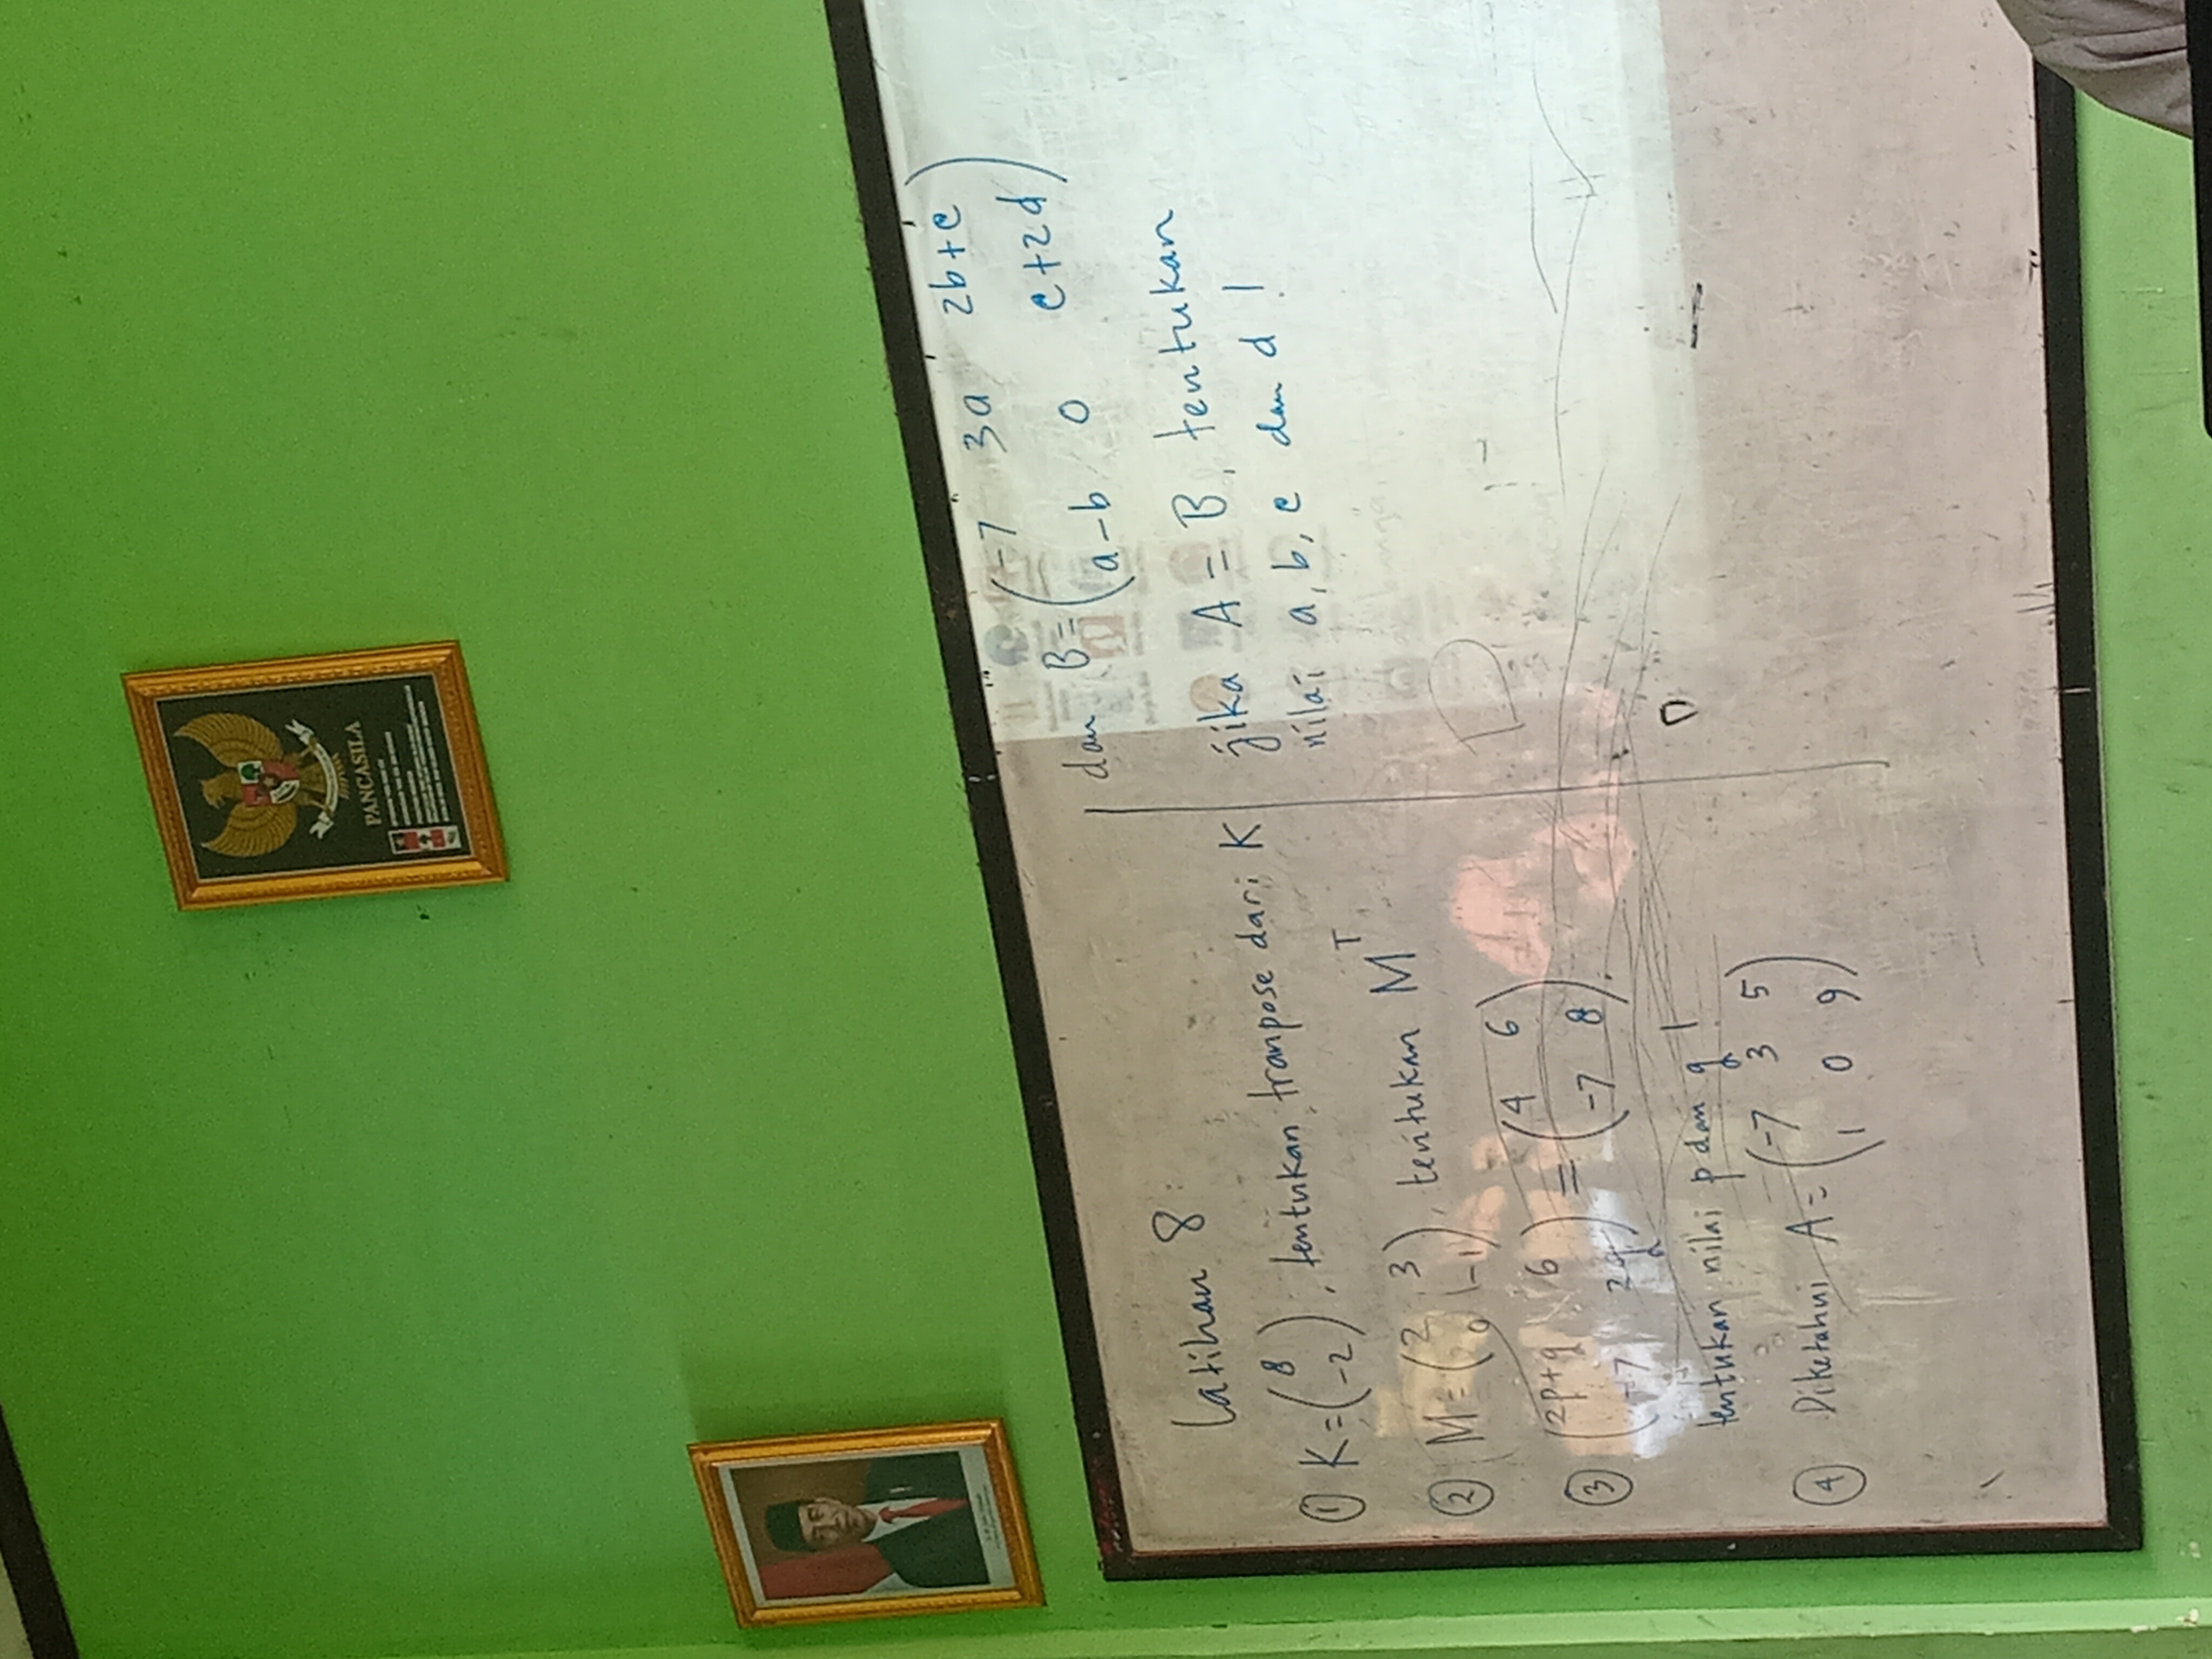 PANCASILA
Latihan 8
① K = ( 8
-2 ), tentukan tranpose dari K
② M = ( 2 3
0 -1 ), tentukan Mᵀ
③ ( 2p+q 6
-7 2q ) = ( 4 6
-7 8 ).
tentukan nilai p dan q !
④ Diketahui A = ( -7 3 5
1 0 9 )
dan B = ( -7 3a 2b+c
a-b 0 c+2d )
jika A = B, tentukan
nilai a, b, c dan d !